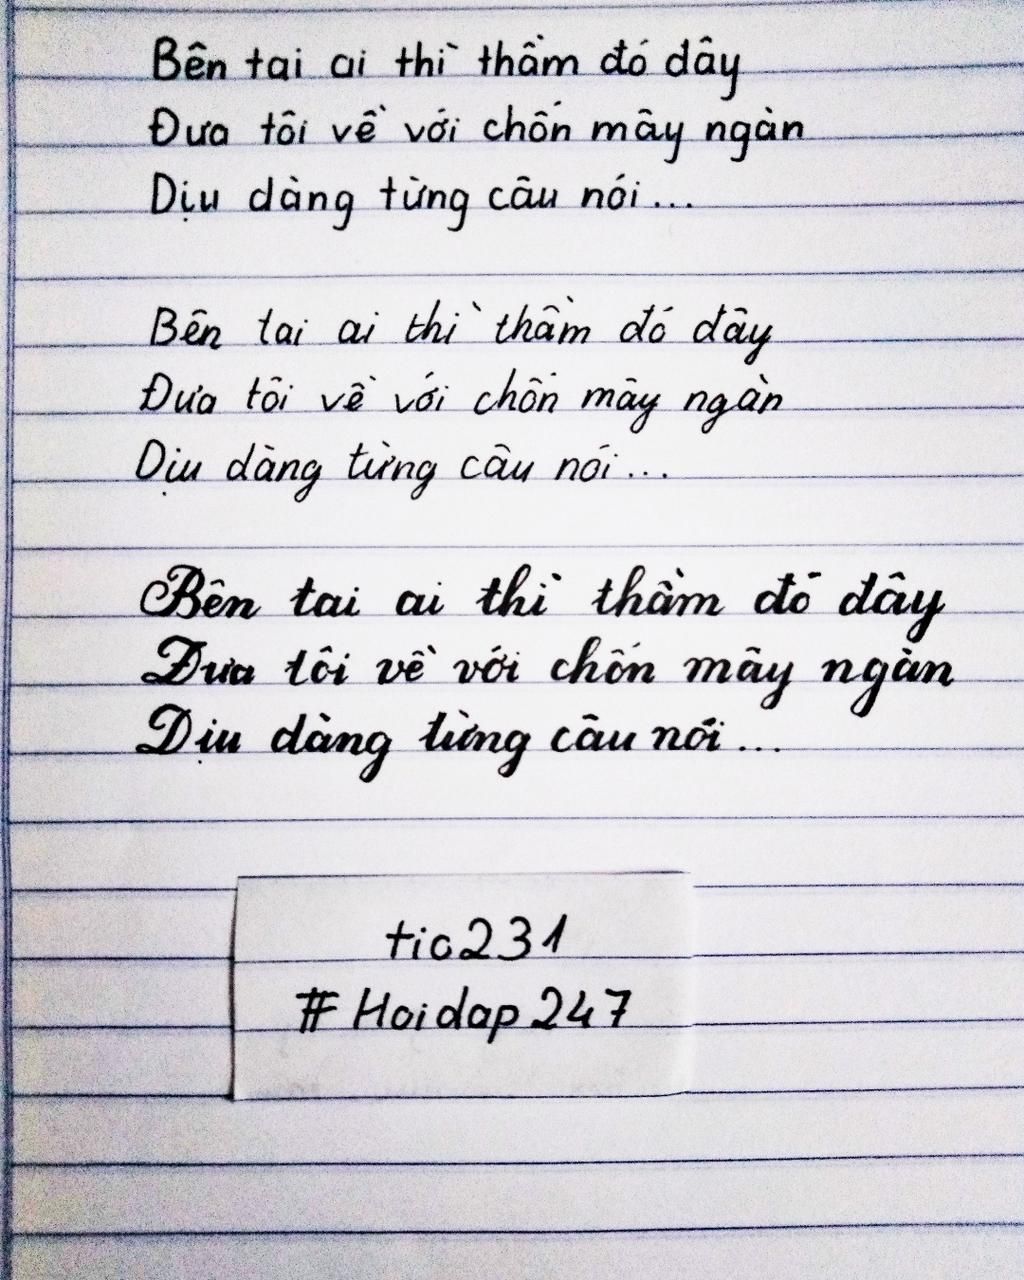 Bên tai ai thì thầm đó đây
Đưa tôi về với chốn mây ngàn
Dịu dàng từng câu nói...
Bên tai ai thì thầm đó đây
Đưa tôi về với chốn mây ngàn
Dịu dàng từng câu nói...
Bên tai ai thì thầm đó đây
Đưa tôi về với chốn mây ngàn
Dịu dàng từng câu nói...
tic231
#Hoidap247